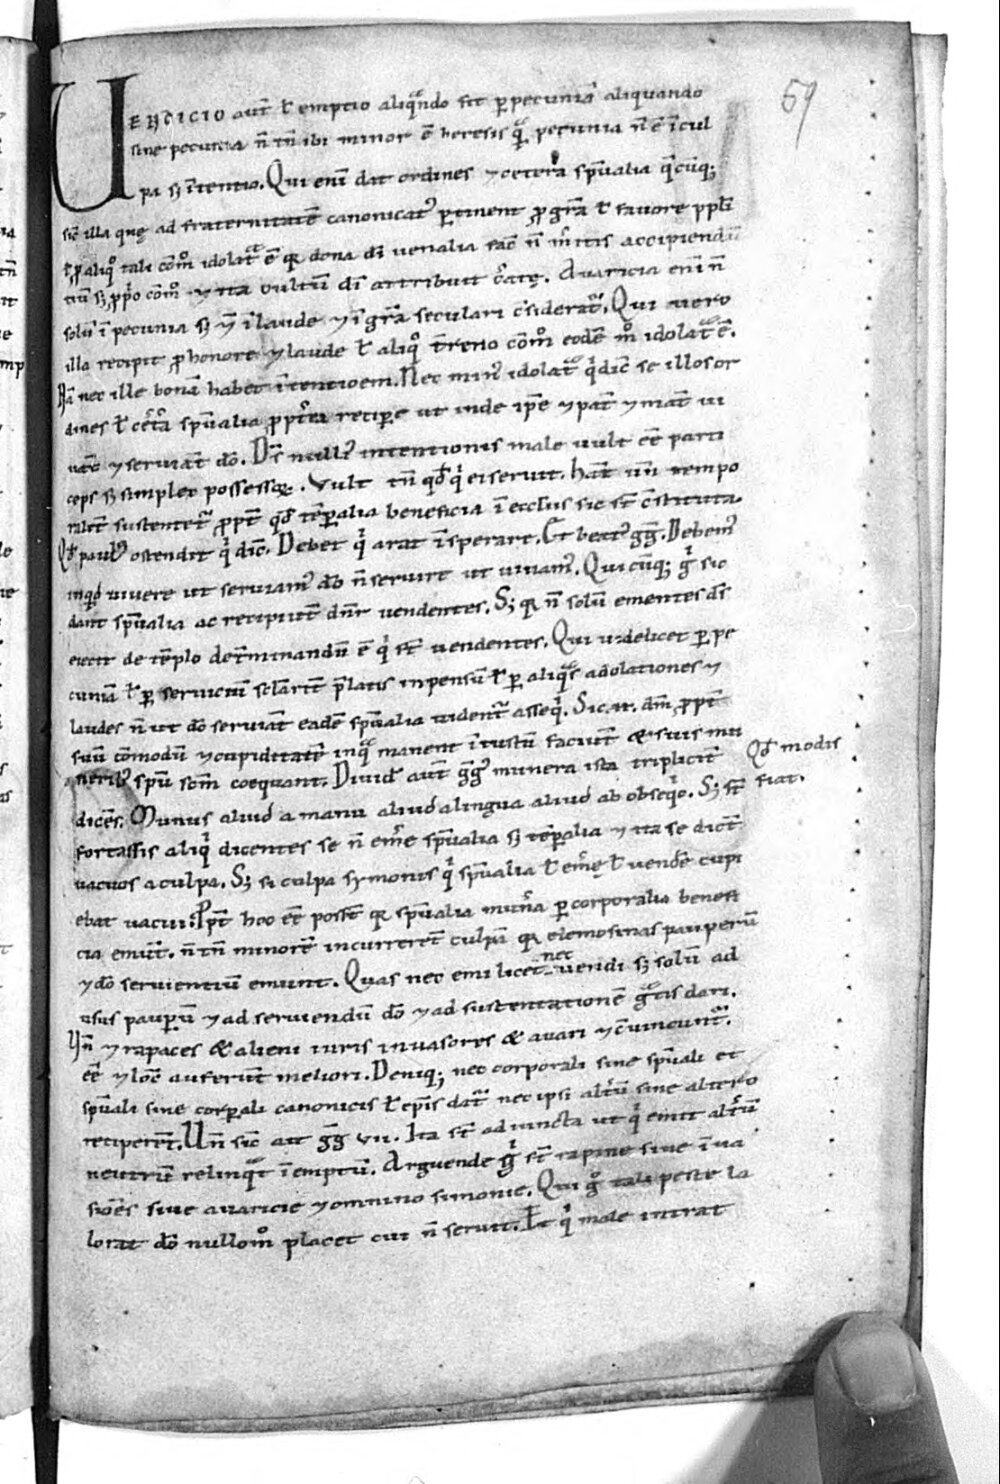 59
UENDICIO aut̄ ł emptio aliqᵃndo fit p̱ pecuniā aliquando
sine pecunia n̄ tn̄ ibi minor ē heresis qᵃ pecunia n̄ ē ī cul
pa s; ītentio. Qui eni dat ordines ⁊ cetera sp̄ualia qͥcūq;
sic̄ illa quę ad fraternitatē canonicatꝰ ꝑtinent ꝓ gr̄a ł favore pp̄łi
ł ꝓ aliqͦ tali cōmͦ idolatᵃ ē qꝛ dona di uenalia fac̄ n̄ mͥtis accipiendi
tiū s; ꝓpͥo cōmͦ ⁊ ita cultū di attribuit
solū ī pecunia s; ⁊ ī laude ⁊ ī gr̄a seculari c̄siderat̄. Qui uero
illa recipit ꝓ honore ⁊ laude ł aliqͦ t̄reno cōmͦ eodē mͦ idolatᵃ ē.
nec ille bonā habet ītentioem. Nec minꝰ idolatᵃ qͥ dic̄ se illos or
dines ł cet̄a sp̄ualia ꝓpt̄ea recipe ut inde ip̄e ⁊ pat̄ ⁊ mat̄ ui
uāt ⁊ seruiāt dō. Ds̄ nullꝰ intentionis male uult ēē parti
ceps s; simplex possessor. Vult tn̄ qd̄ qͥ ei seruit. hāt uñ tempo
ralit̄ sustentet̄ ꝓpt̄ qd̄ tēꝑalia beneficia ī ecclīis sic st̄ c̄stituta.
Qd̄ paulꝰ ostendit qͥ dic̄. Debet qͥ arat ī spe arare. Et beatꝰ gḡ. Debemꝰ
inqͥd uiuere ut seruiamꝰ dō n̄ seruire ut uiuamꝰ. Qui cūq; gͥ sic
dant sp̄ualia ac recipiūt dn̄r uendentes. S; qꝛ n̄ solū ementes ds̄
eiecit de tēplo det̄minandū ē qͥ st̄ uendentes. Qui uidelicet ꝑ pe
cuniā ł ꝑ seruiciū sc̄larit̄ p̄latis inpensū ł ꝑ aliqᵃs adolationes ⁊
laudes n̄ ut dō seruiāt eadē sp̄ualia uident̄ asseqͥ. Sic n̄. dm̄ ꝓpt̄
suū cōmodū ⁊ cupiditatē inqᵃ manent īiustū faciūt & suis mu
neribꝰ sp̄m sc̄m coequant. Diuid̄ aut̄ ggͥ munera ista triplicit̄
dicēs. Munus aliud a manu aliud a lingua aliud ab obseqͦ. S; st̄
Qd̄ modis
fiat.
fortassis aliqͥ dicentes se n̄ em̄e sp̄ualia s; tēꝑalia ⁊ ita se dic̄t
uacuos a culpa. S; si culpa symonis qͥ sp̄ualia ł em̄e ł uendē cupi
ebat uacui. Pt̄ hoc ēē posset qꝛ sp̄ualia mun̄a ꝑ corporalia benefi
cia emūt. n̄ tn̄ minorē incurrerēt culpā qꝛ elemosinas pauperū
⁊ dō seruientiū emunt. Quas nec emi licet nec uendi s; solū ad
usus pauꝑū ⁊ ad seruiendū dō ⁊ ad sustentationē gᵃtis dari.
Uñ ⁊ rapaces & alieni iuris inuasores & auari ⁊ c̄uincunt̄.
ēē ⁊ loc̄ auferūt meliori. Deniq; nec corporali sine sp̄uali et
sp̄uali sine corꝑali canonicis ł ep̄is dat̄ nec ipsi alt̄ū sine altero
reciperēt. Uñ sic̄ ait gḡ vii. Ita st̄ adiuncta ut qͥ emit alt̄ū
neutrū relinqᵃt īemptū. Arguende gͥ st̄ rapine siue īua
siōes siue auaricie ⁊ omnino simonie. Qui gͦ tali peste la
borat dō nullomͦ placet cui n̄ seruit. Et qͥ male intrat